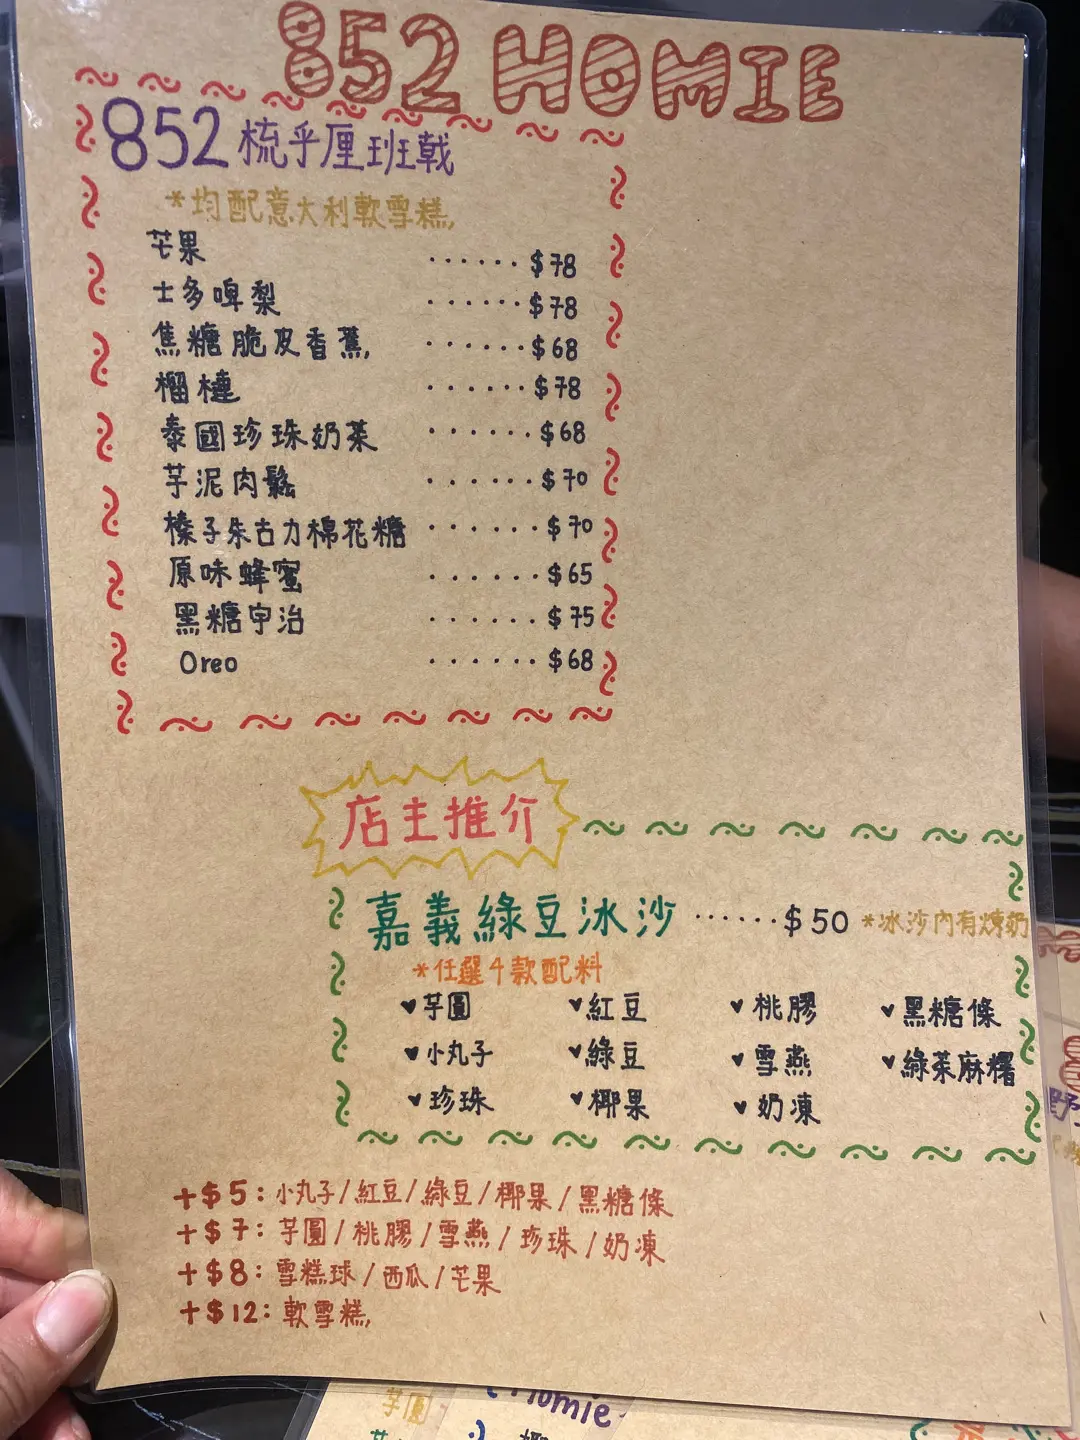 852 HOMIE
852 梳乎厘班戟
*均配意大利軟雪糕
芒果 ······ $78
士多啤梨 ······ $78
焦糖脆皮香蕉 ······ $68
榴槤 ······ $78
泰國珍珠奶茶 ······ $68
芋泥肉鬆 ······ $70
榛子朱古力棉花糖 ······ $70
原味蜂蜜 ······ $65
黑糖宇治 ······ $75
Oreo ······ $68
店主推介
嘉義綠豆冰沙 ······ $50 *冰沙內有煉奶
*任選4款配料
♥芋圓 ♥紅豆 ♥桃膠 ♥黑糖條
♥小丸子 ♥綠豆 ♥雪燕 ♥綠茶麻糬
♥珍珠 ♥椰果 ♥奶凍
+$5:小丸子/紅豆/綠豆/椰果/黑糖條
+$7:芋圓/桃膠/雪燕/珍珠/奶凍
+$8:雪糕球/西瓜/芒果
+$12:軟雪糕
芋圓
Homie